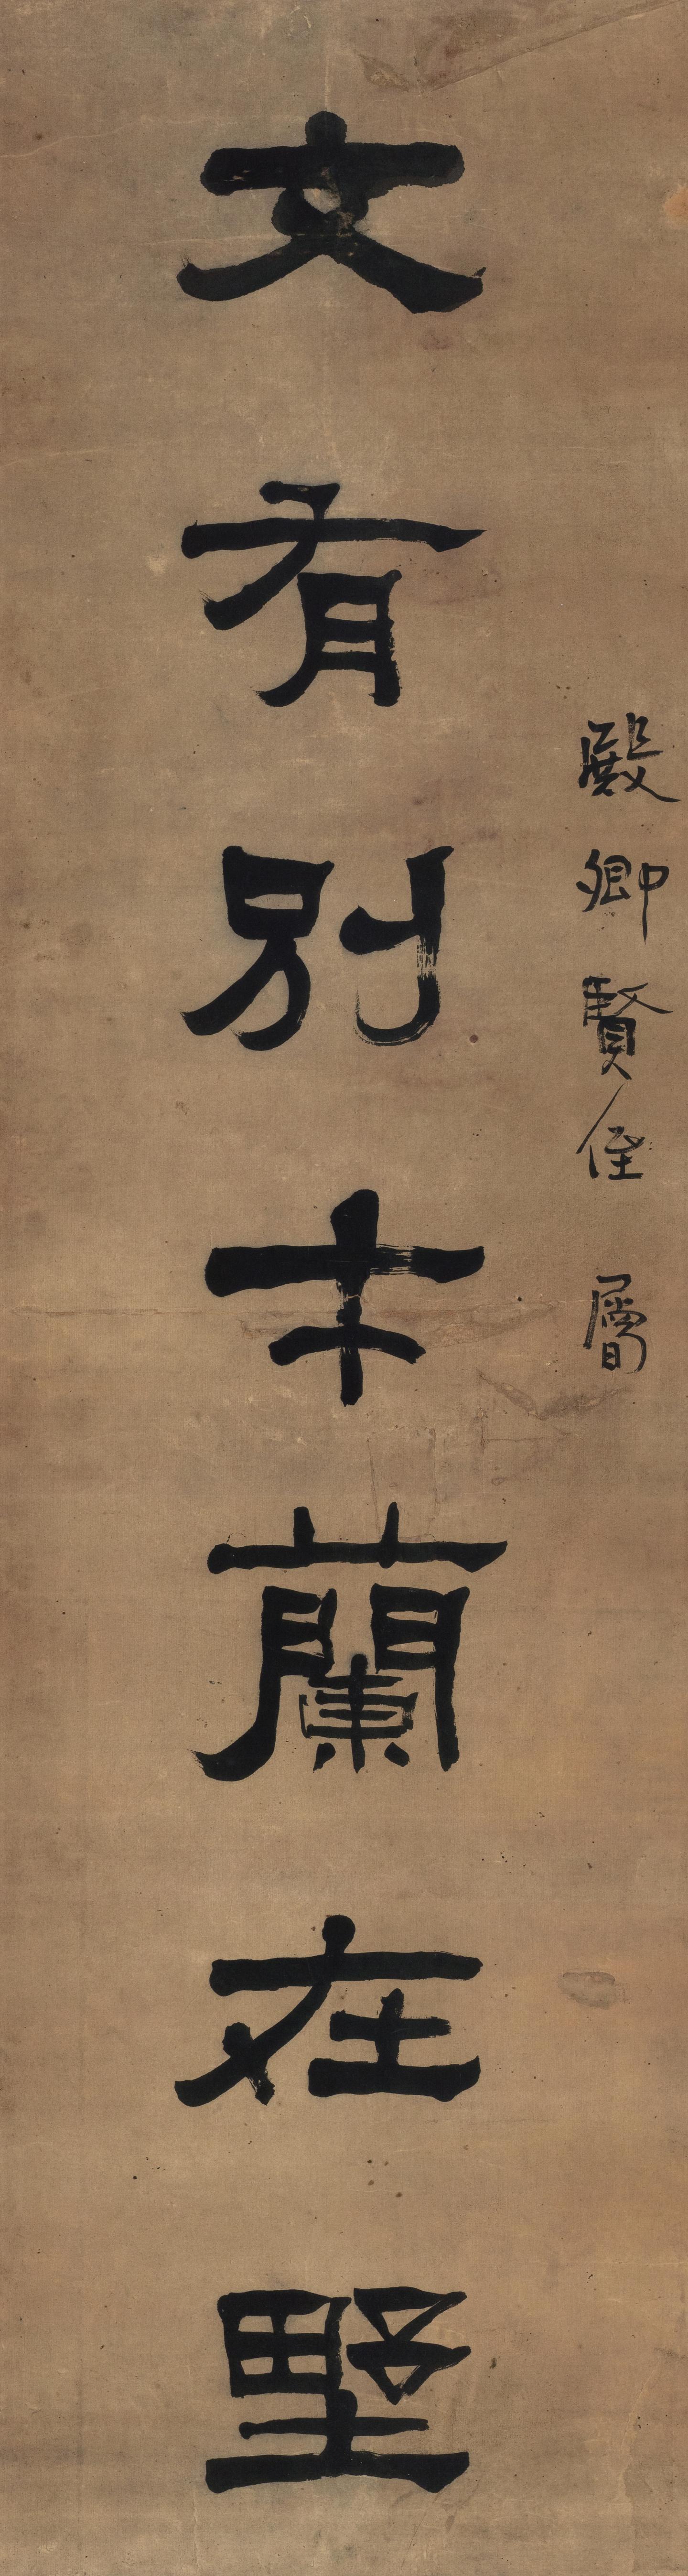 殿卿賢侄 屬
文有別才蘭在野